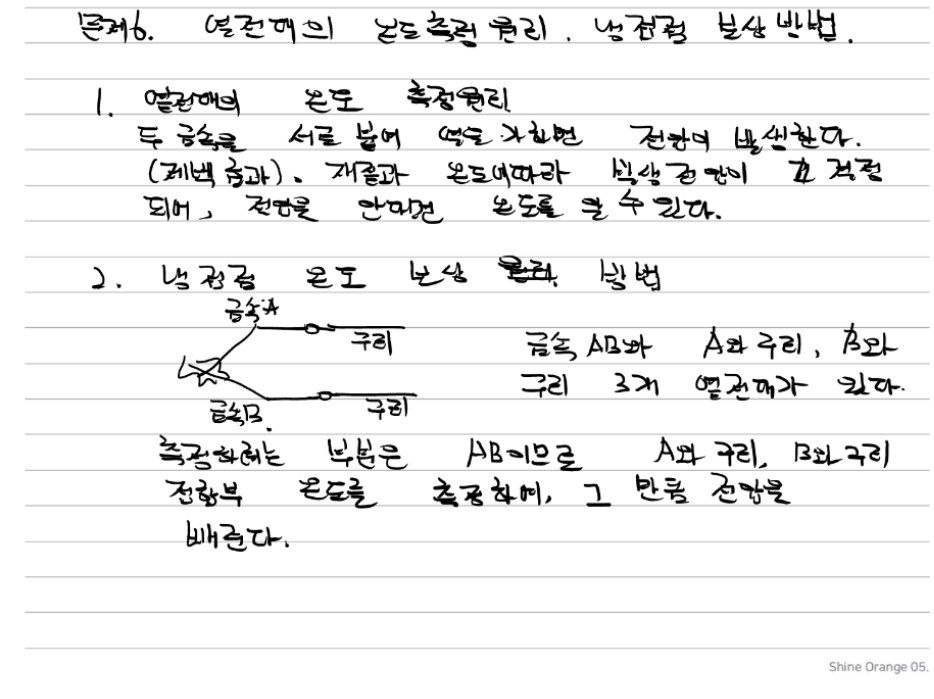 문제6. 열전대의 온도측정 원리, 냉접점 보상방법.
1. 열전대의 온도 측정원리
두 금속을 서로 붙여 열을 가하면 전압이 발생한다.
(제벡 효과). 재질과 온도에따라 발생전압이 결정
되어, 전압을 안다면 온도를 알 수 있다.
2. 냉접점 온도 보상 방법
금속A
구리
금속 AB와 A와 구리, B와
구리 3개 열전대가 있다.
금속B.
구리
측정하려는 부분은 AB이므로 A와 구리, B와 구리
접합부 온도를 측정하여, 그 만큼 전압을
빼준다.
Shine Orange 05.